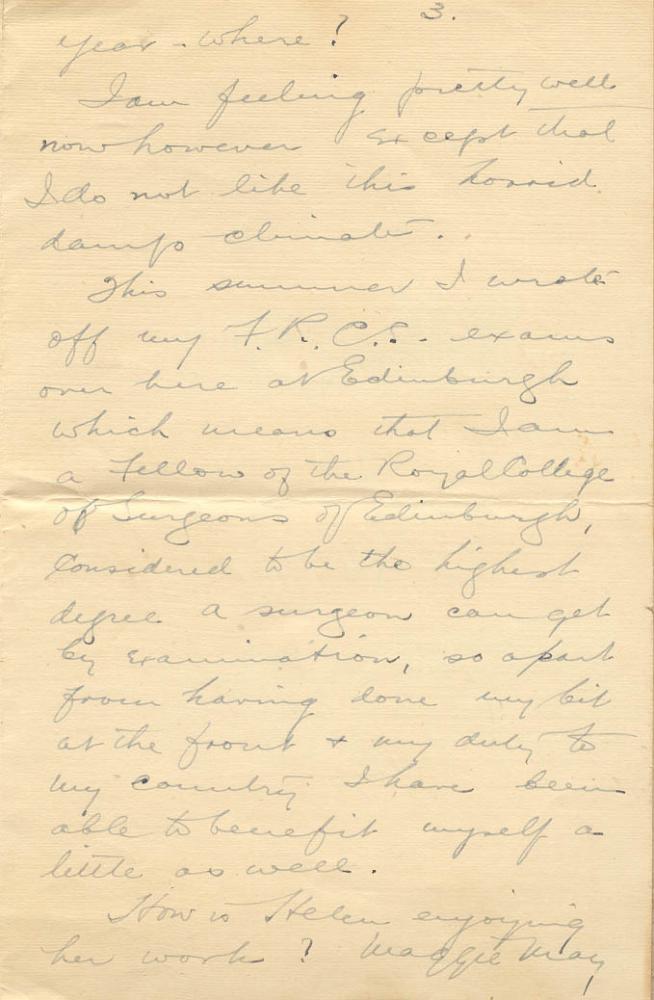 3.
year - where?
I am feeling pretty well
now however except that
I do not like this horrid
damp climate.
This summer I wrote
off my F.R.C.S. exams
over here at Edinburgh
which means that I am
a Fellow of the Royal College
of Surgeons of Edinburgh,
considered to be the highest
degree a surgeon can get
by examination, so apart
from having done my bit
at the front + my duty to
my country I have been
able to benefit myself a
little as well.
How is Helen enjoying
her work? Maggie May,